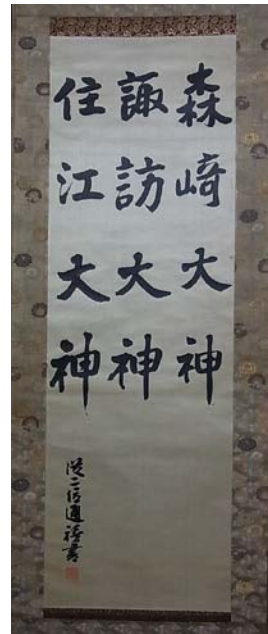 森﨑大神
諏訪大神
住江大神
従二位通禧書